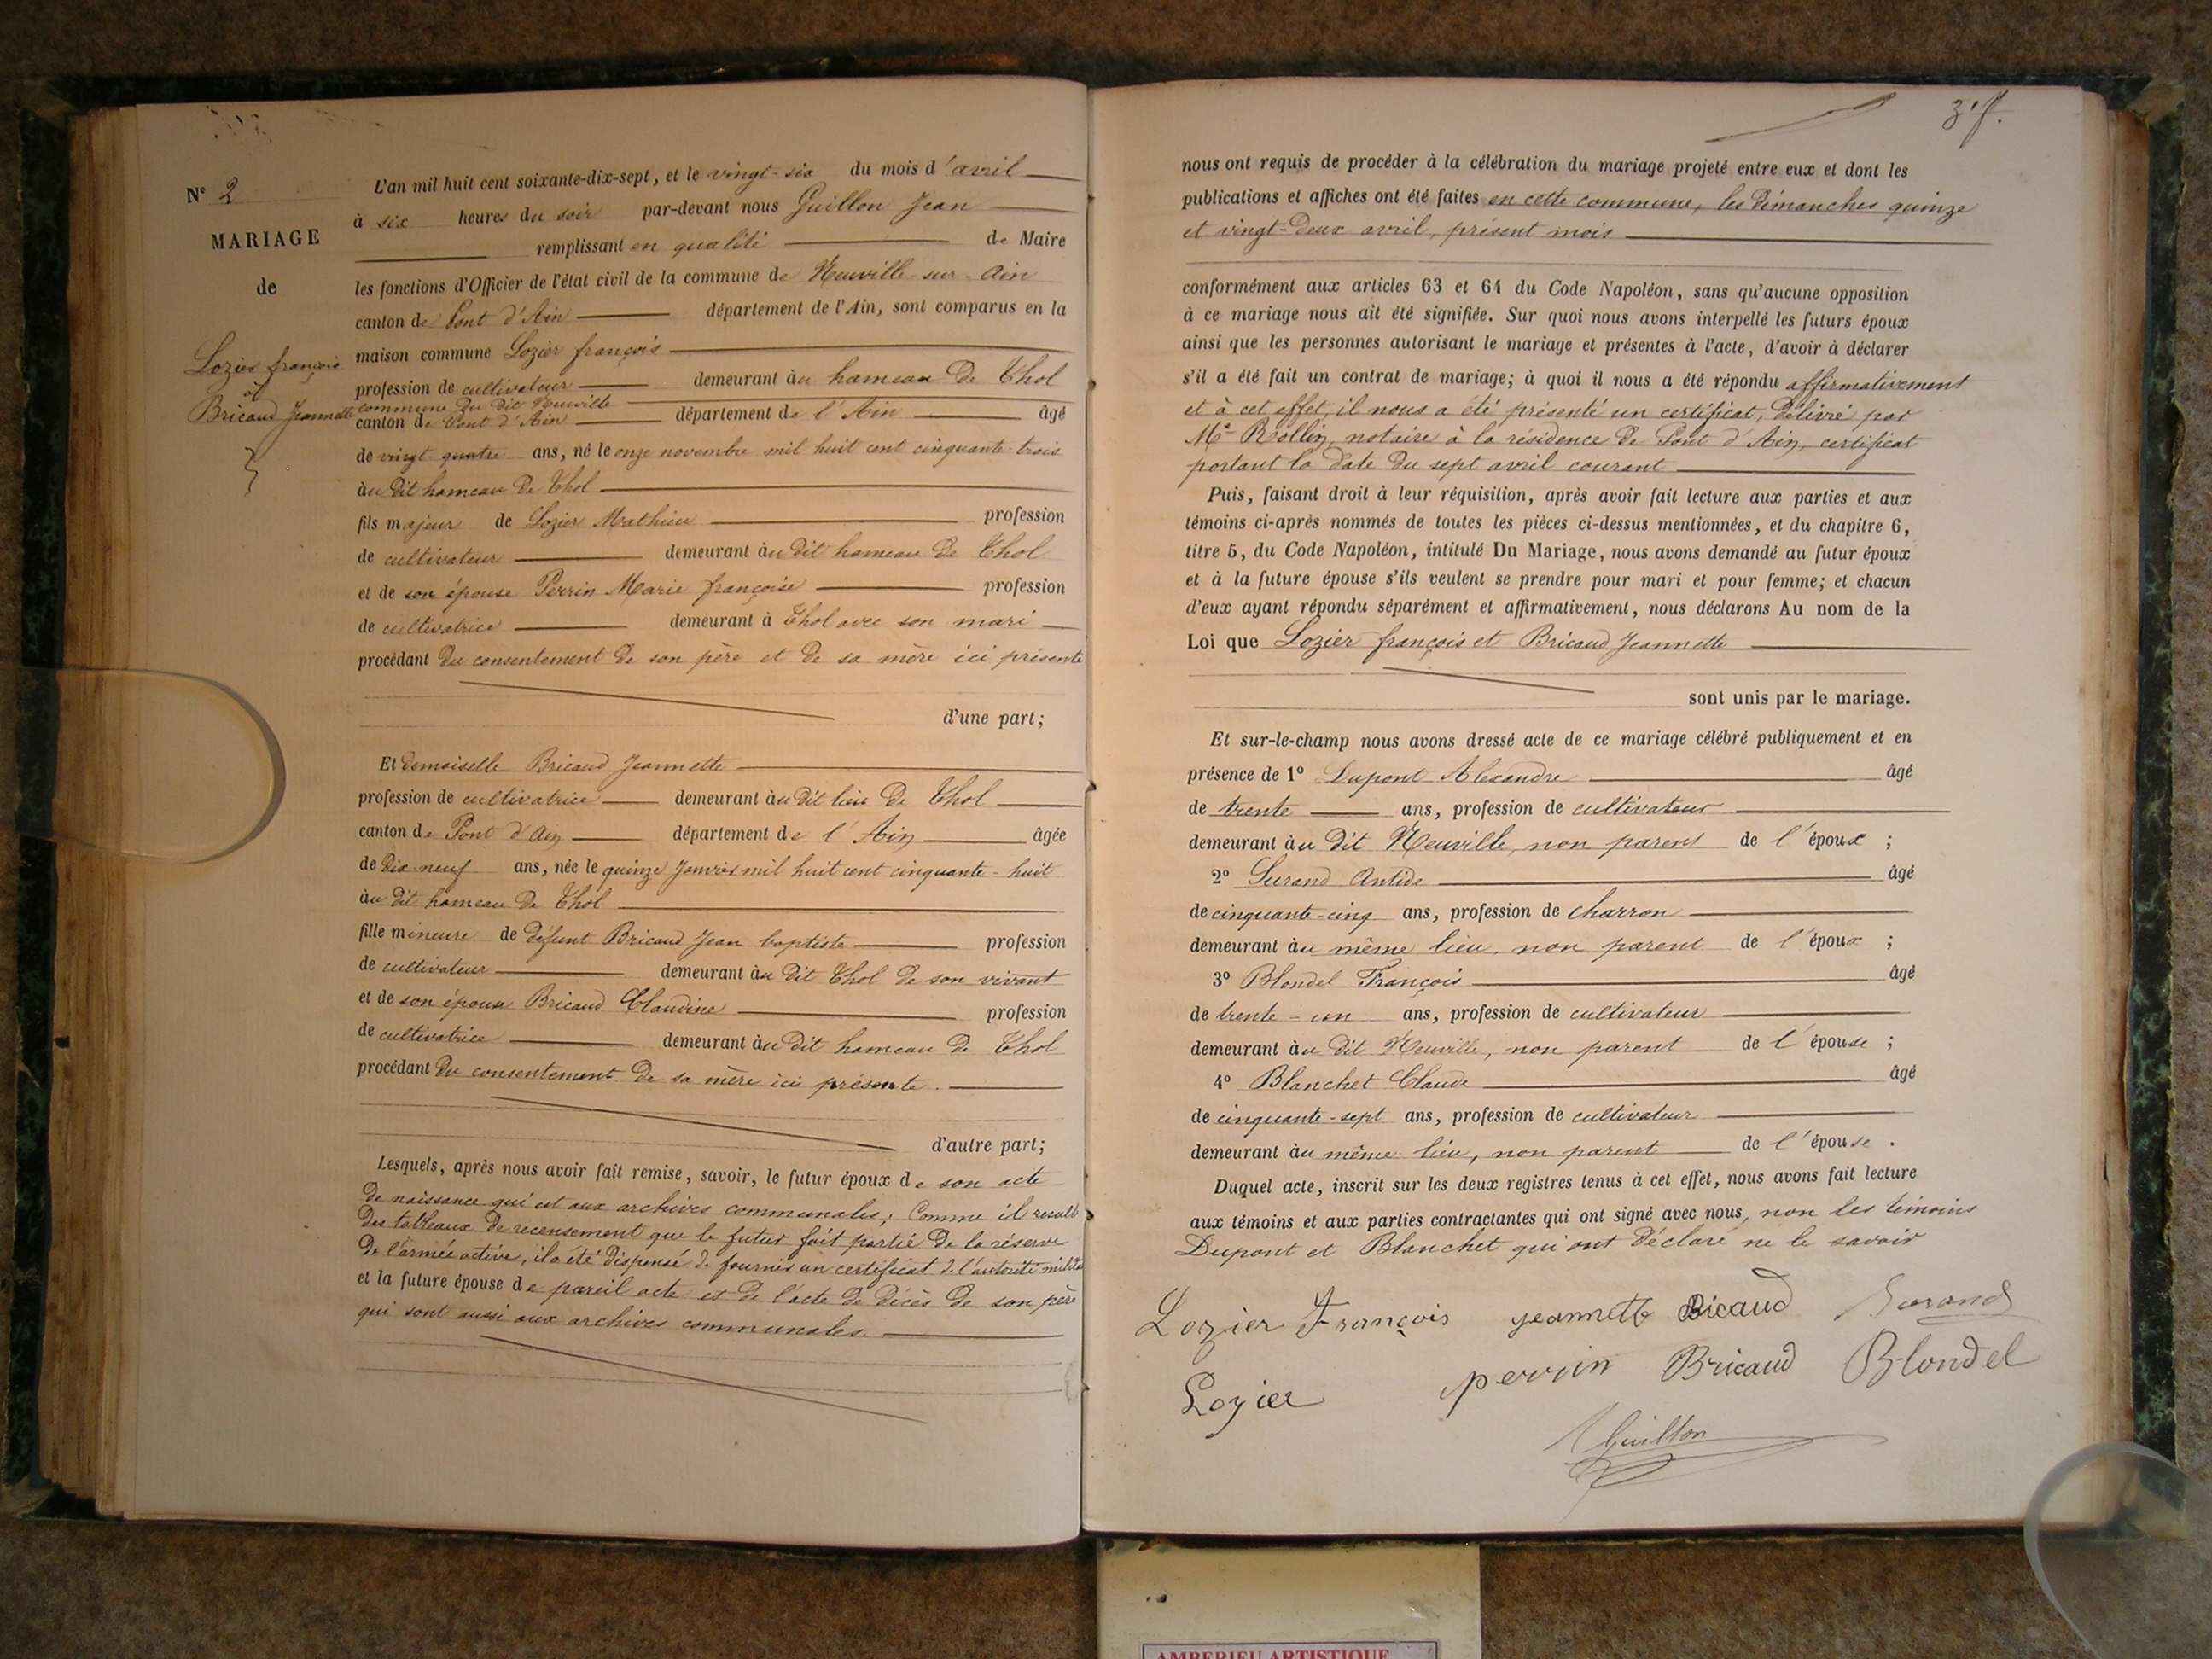 N° 2
MARIAGE
de
Lozier françois
et
Bricaud Jeannette
L'an mil huit cent soixante-dix-sept, et le vingt-six du mois d'avril
à six heures du soir par-devant nous Guillon Jean
remplissant en qualité de Maire
les fonctions d'Officier de l'état civil de la commune de Neuville-sur-Ain
canton de Pont d'Ain département de l'Ain, sont comparus en la
maison commune Lozier françois
profession de cultivateur demeurant au hameau de Thol
commune du dit Neuville
canton de Pont d'Ain département de l'Ain âgé
de vingt-quatre ans, né le onze novembre mil huit cent cinquante-trois
au dit hameau de Thol
fils majeur de Lozier Mathieu profession
de cultivateur demeurant au dit hameau de Thol
et de son épouse Perrin Marie françoise profession
de cultivatrice demeurant à Thol avec son mari
procédant du consentement de son père et de sa mère ici présente
d'une part;
Et demoiselle Bricaud Jeannette
profession de cultivatrice demeurant au dit lieu de Thol
canton de Pont d'Ain département de l'Ain âgée
de dix-neuf ans, née le quinze Janvier mil huit cent cinquante-huit
au dit hameau de Thol
fille mineure de défunt Bricaud Jean baptiste profession
de cultivateur demeurant au dit Thol de son vivant
et de son épouse Bricaud Claudine profession
de cultivatrice demeurant au dit hameau de Thol
procédant du consentement de sa mère ici présente.
d'autre part;
Lesquels, après nous avoir fait remise, savoir, le futur époux de son acte
de naissance qui est aux archives communales; Comme il résulte
des tableaux de recensement que le futur fait partie de la réserve
de l'armée active, il a été dispensé de fournir un certificat de l'autorité
et la future épouse de pareil acte et de l'acte de décès de son père
qui sont aussi aux archives communales.
37.
nous ont requis de procéder à la célébration du mariage projeté entre eux et dont les
publications et affiches ont été faites en cette commune, les dimanches quinze
et vingt-deux avril, présent mois
conformément aux articles 63 et 64 du Code Napoléon, sans qu'aucune opposition
à ce mariage nous ait été signifiée. Sur quoi nous avons interpellé les futurs époux
ainsi que les personnes autorisant le mariage et présentes à l'acte, d'avoir à déclarer
s'il a été fait un contrat de mariage; à quoi il nous a été répondu affirmativement
et à cet effet, il nous a été présenté un certificat, délivré par
Me Rollin, notaire à la résidence de Pont d'Ain, certificat
portant la date du sept avril courant
Puis, faisant droit à leur réquisition, après avoir fait lecture aux parties et aux
témoins ci-après nommés de toutes les pièces ci-dessus mentionnées, et du chapitre 6,
titre 5, du Code Napoléon, intitulé Du Mariage, nous avons demandé au futur époux
et à la future épouse s'ils veulent se prendre pour mari et pour femme; et chacun
d'eux ayant répondu séparément et affirmativement, nous déclarons Au nom de la
Loi que Lozier françois et Bricaud Jeannette
sont unis par le mariage.
Et sur-le-champ nous avons dressé acte de ce mariage célébré publiquement et en
présence de 1° Dupont Alexandre âgé
de trente ans, profession de cultivateur
demeurant au dit Neuville, non parent de l'époux ;
2° Surand Antide âgé
de cinquante-cinq ans, profession de charron
demeurant au même lieu, non parent de l'époux ;
3° Blondel François âgé
de trente-un ans, profession de cultivateur
demeurant au dit Neuville, non parent de l'épouse ;
4° Blanchet Claude âgé
de cinquante-sept ans, profession de cultivateur
demeurant au même lieu, non parent de l'épouse .
Duquel acte, inscrit sur les deux registres tenus à cet effet, nous avons fait lecture
aux témoins et aux parties contractantes qui ont signé avec nous, non les témoins
Dupont et Blanchet qui ont déclaré ne le savoir
Lozier François jeannette Bricaud Surand
Lozier perrin Bricaud Blondel
Guillon
AMBERIEU ARTISTIQUE